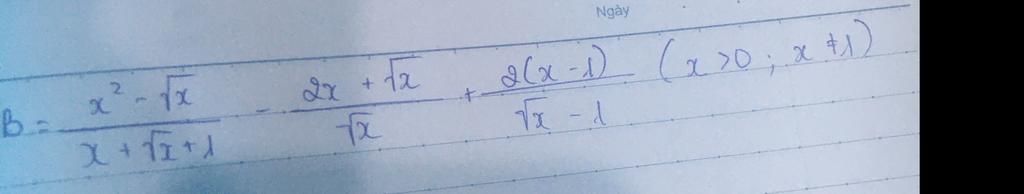 Ngày
B = \frac{x^2 - \sqrt{x}}{x + \sqrt{x} + 1} - \frac{2x + \sqrt{x}}{\sqrt{x}} + \frac{2(x - 1)}{\sqrt{x} - 1} (x > 0; x ≠ 1)